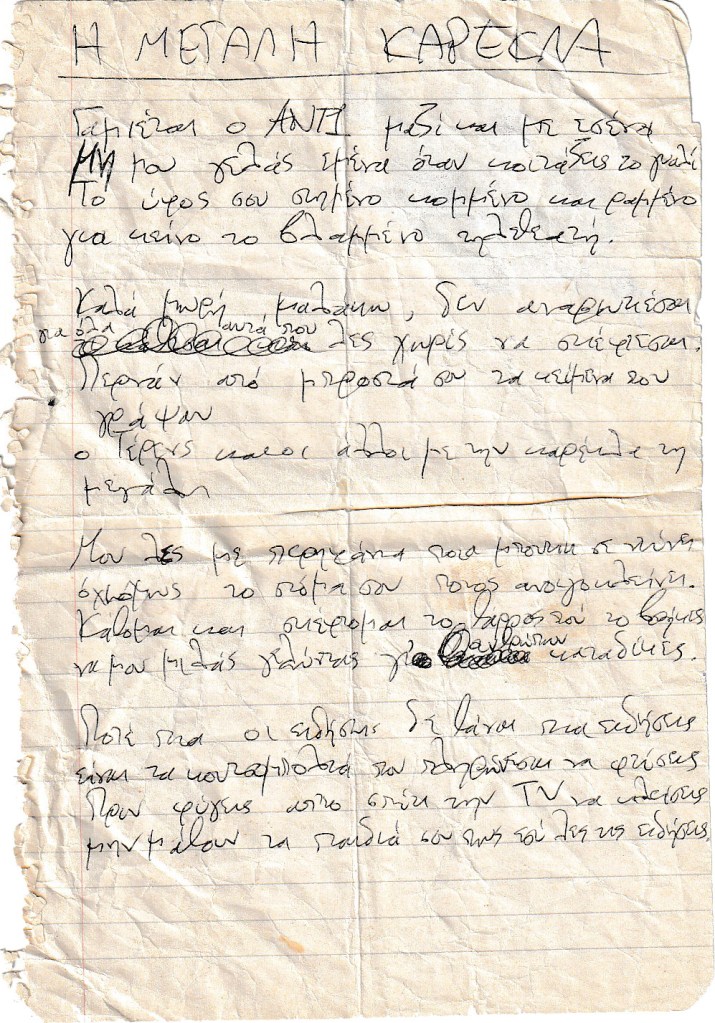 Η ΜΕΓΑΛΗ ΚΑΡΕΚΛΑ
Γαμιέται ο ΑΝΤ1 μαζί και με εσένα
Μη μου γελάς εμένα όταν κοιτάζεις το γυαλί
Το ύφος σου στημένο κομμένο και ραμμένο
για κείνο το βλαμμένο τηλεθεατή.
Καλά μωρή μαλάκω, δεν αναρωτιέσαι
για όλα αυτά που λες χωρίς να σκέφτεσαι.
Περνάν από μπροστά σου τα κείμενα που
γράψαν
ο Τέρενς και οι άλλοι με την καρέκλα τη
μεγάλη
Μου λες με περηφάνια ποια μπουκα σε
όχι όμως το στόμα σου ποιος ανοιγοκλείνει.
Κάθομαι και σκέφτομαι το θάρρος πού το βρήκες
να μου μιλάς γελώντας για θανάτων καταδίκες.
Ποτέ πια οι ειδήσεις δε θάναι πια ειδήσεις
είναι τα κουτσομπολιά που πληρώνεσαι να φτύσεις
Πριν φύγεις απτο σπίτι την TV να κλείσεις
μην μάθουν τα παιδιά σου πως εσύ λες τις ειδήσεις.